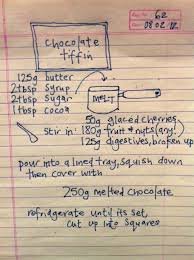 62
08 02 12
chocolate
tiffin
125g butter
2tbsp syrup
2tbsp sugar
1tbsp cocoa
MELT
50g glaced cherries
Stir in: 180g fruit & nuts (any!)
125g digestives, broken up
pour into a lined tray, squish down
then cover with
250g melted chocolate
refridgerate until its set,
cut up into squares